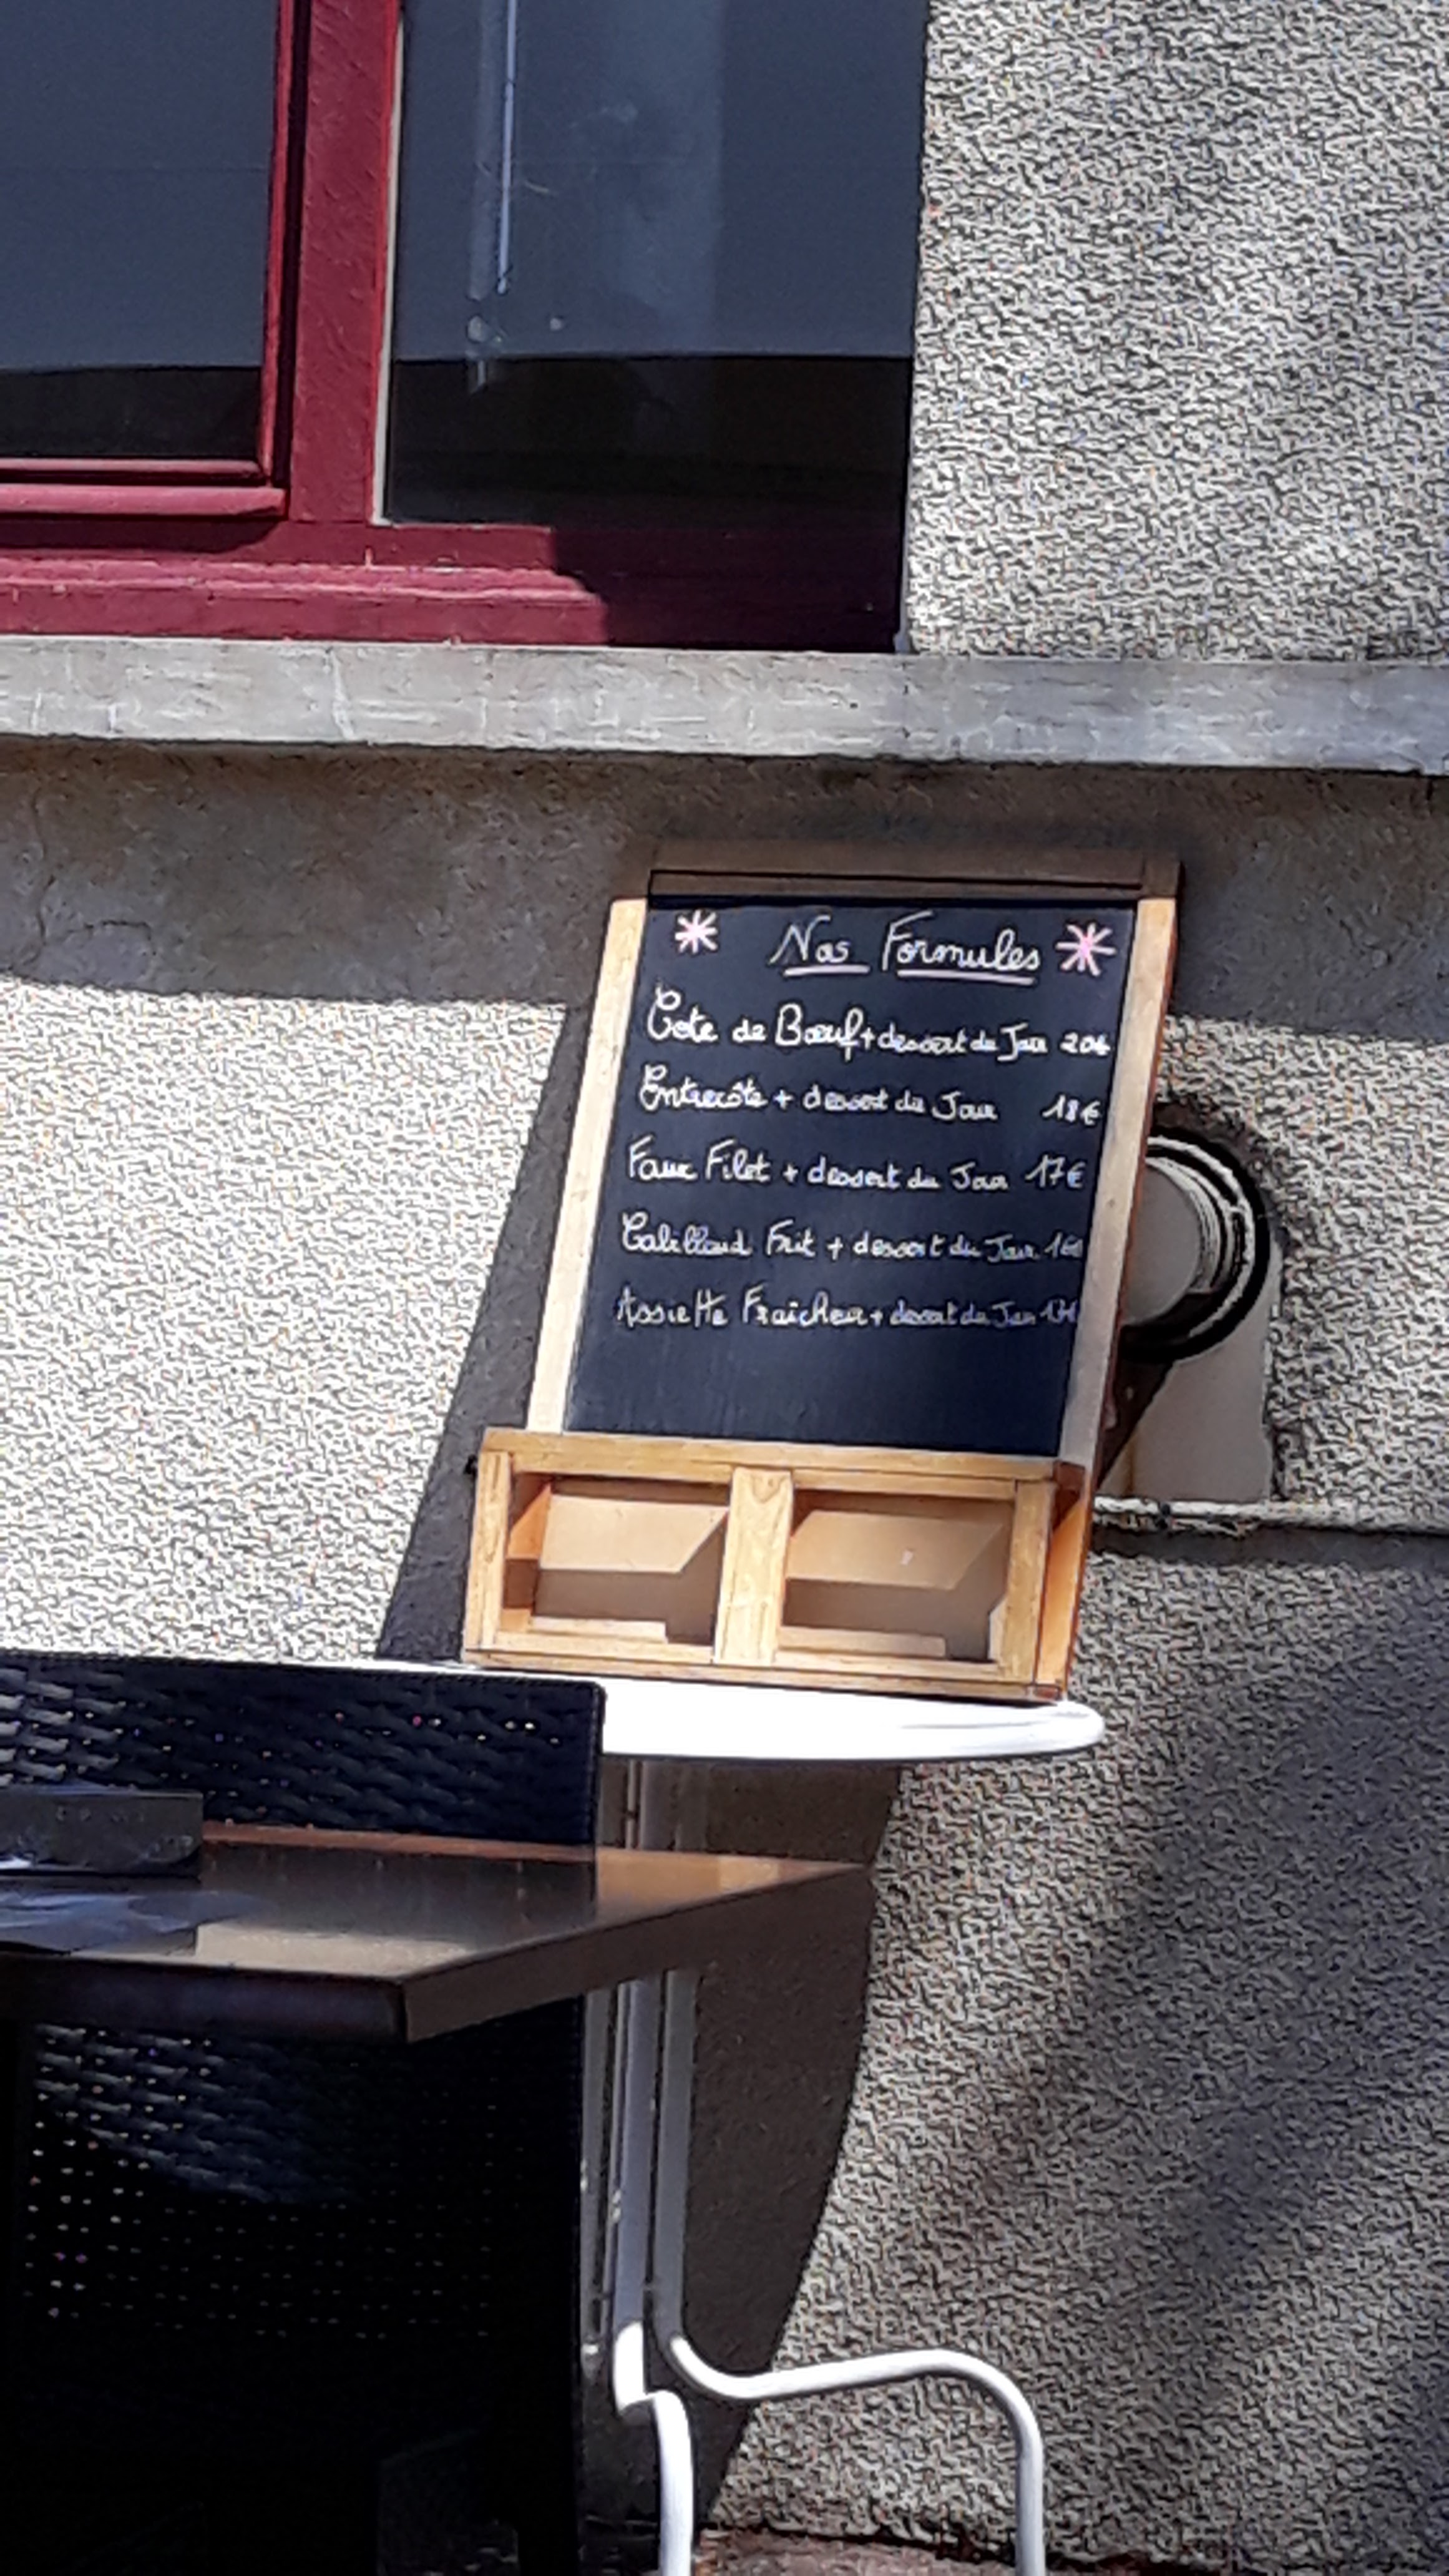 Nos Formules
Cote de Bœuf + dessert du Jour 20€
Entrecôte + dessert du Jour 18€
Faux Filet + dessert du Jour 17€
Cabillaud Frit + dessert du Jour 16€
Assiette Fraîcheur + dessert du Jour